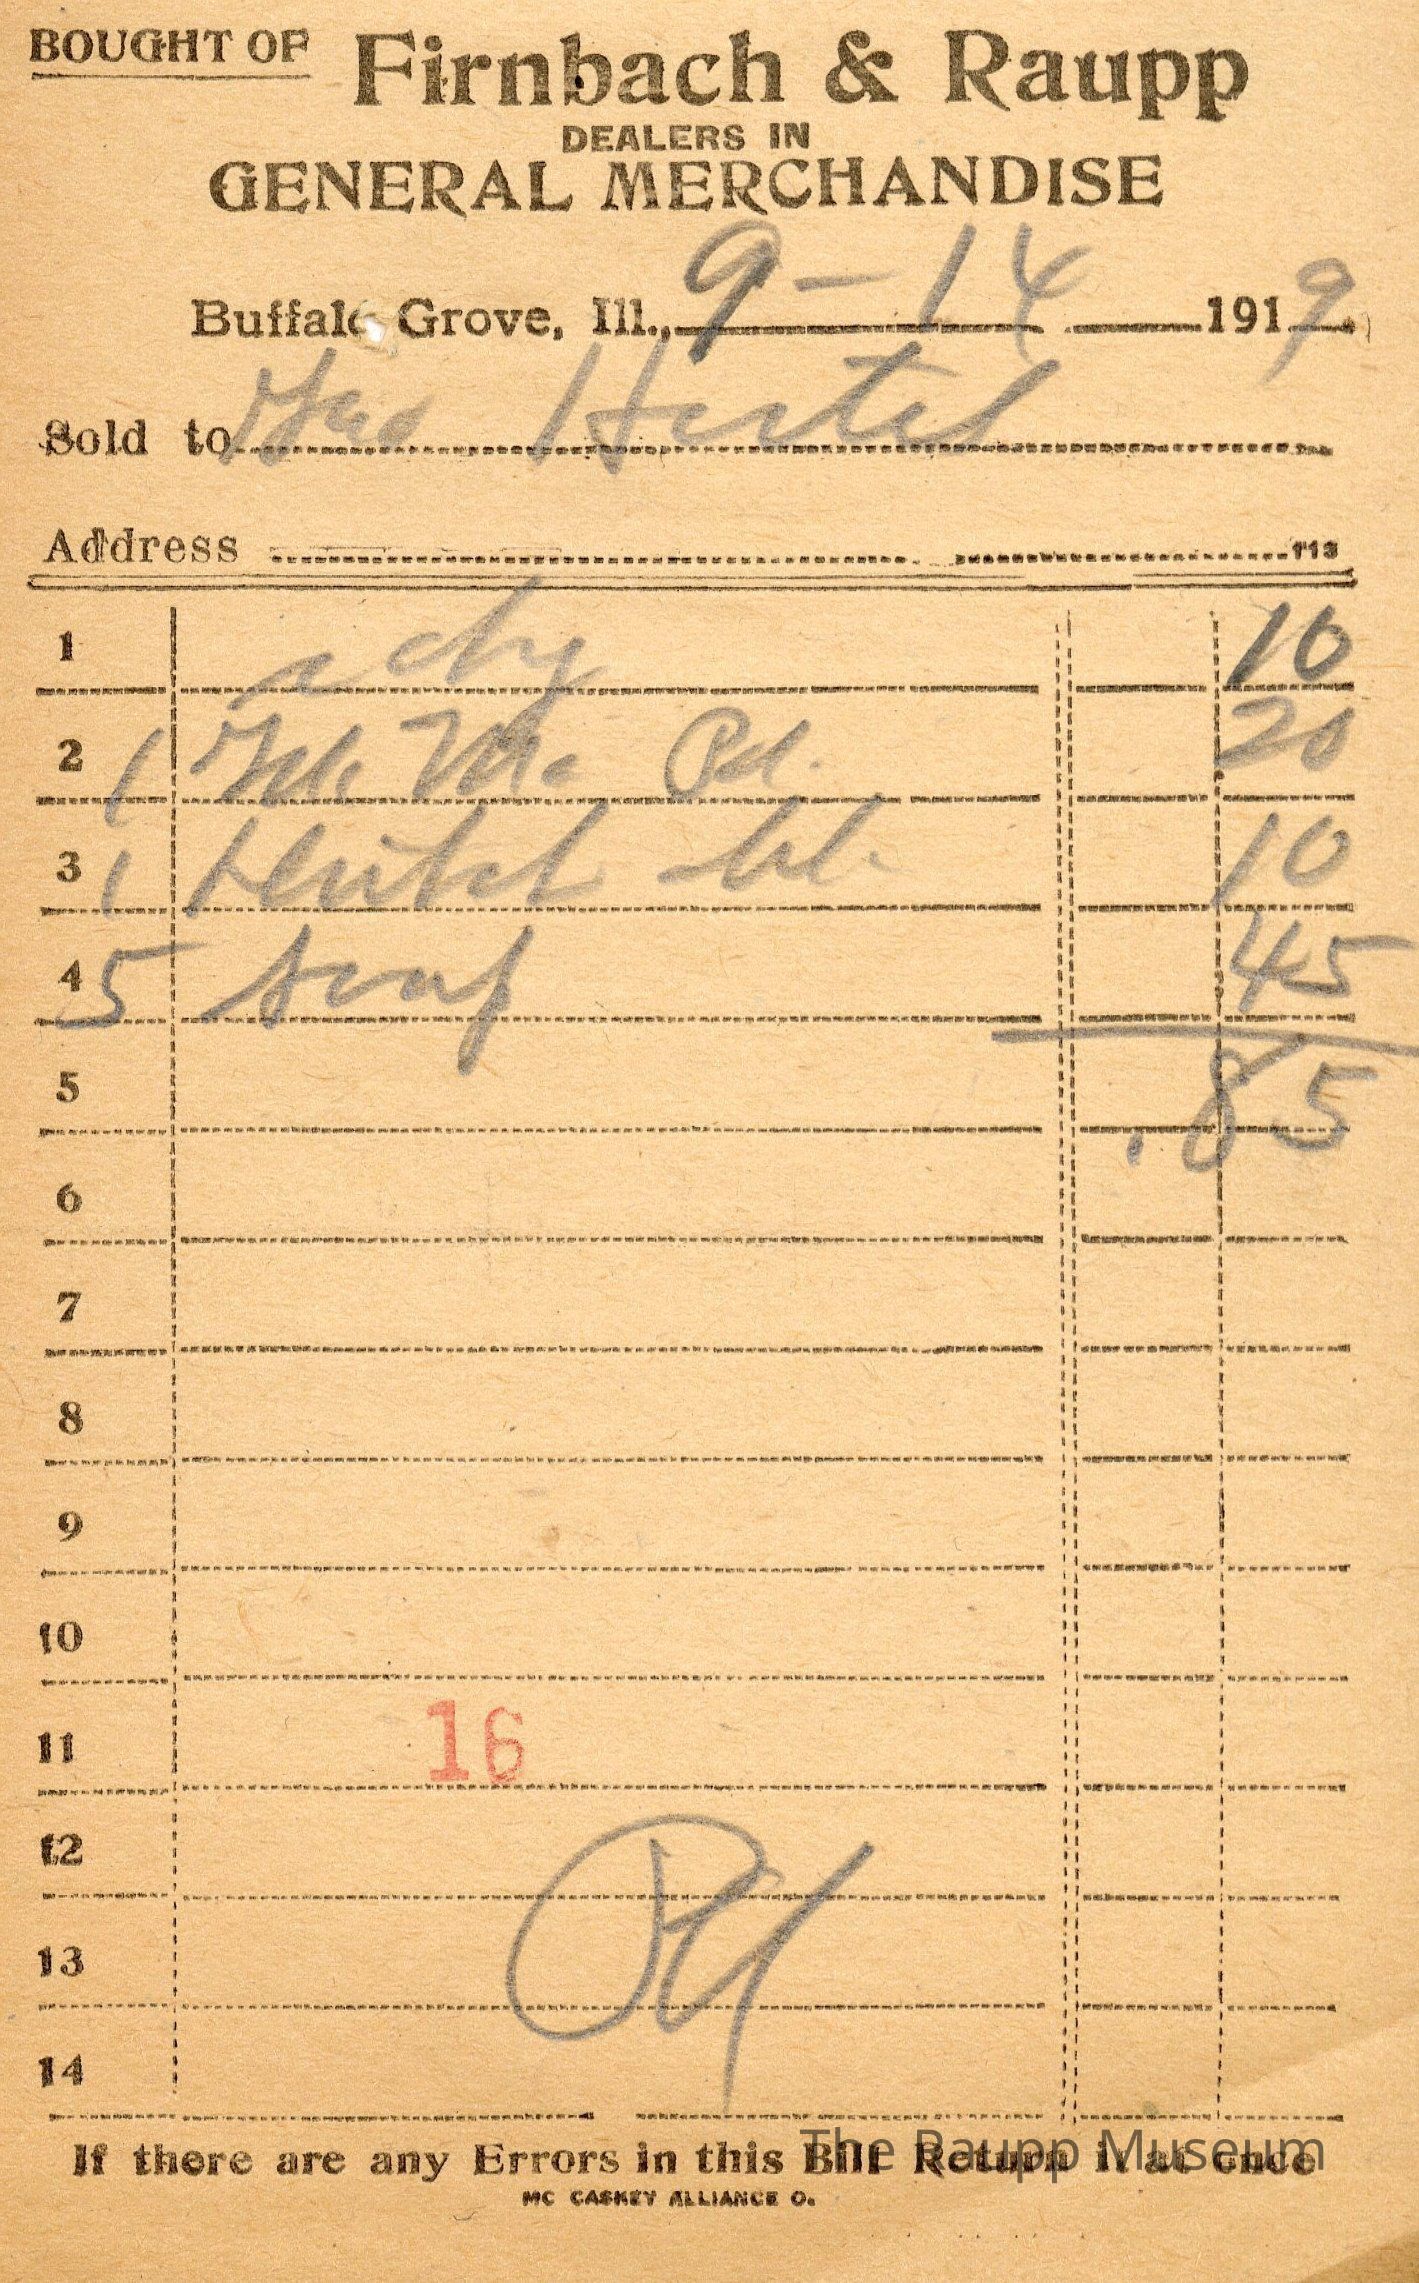 BOUGHT OF Firnbach & Raupp
DEALERS IN
GENERAL MERCHANDISE
Buffalo Grove, Ill., 9-14 1919
Sold to Geo Hertel
Address 113
1 10
2 1 Pd. 20
3 1 bl. 10
4 5 soap 45
5 .85
6
7
8
9
10
11 16
12
13
14
If there are any Errors in this Bill Return it at once
The Raupp Museum
MC CASKEY ALLIANCE O.